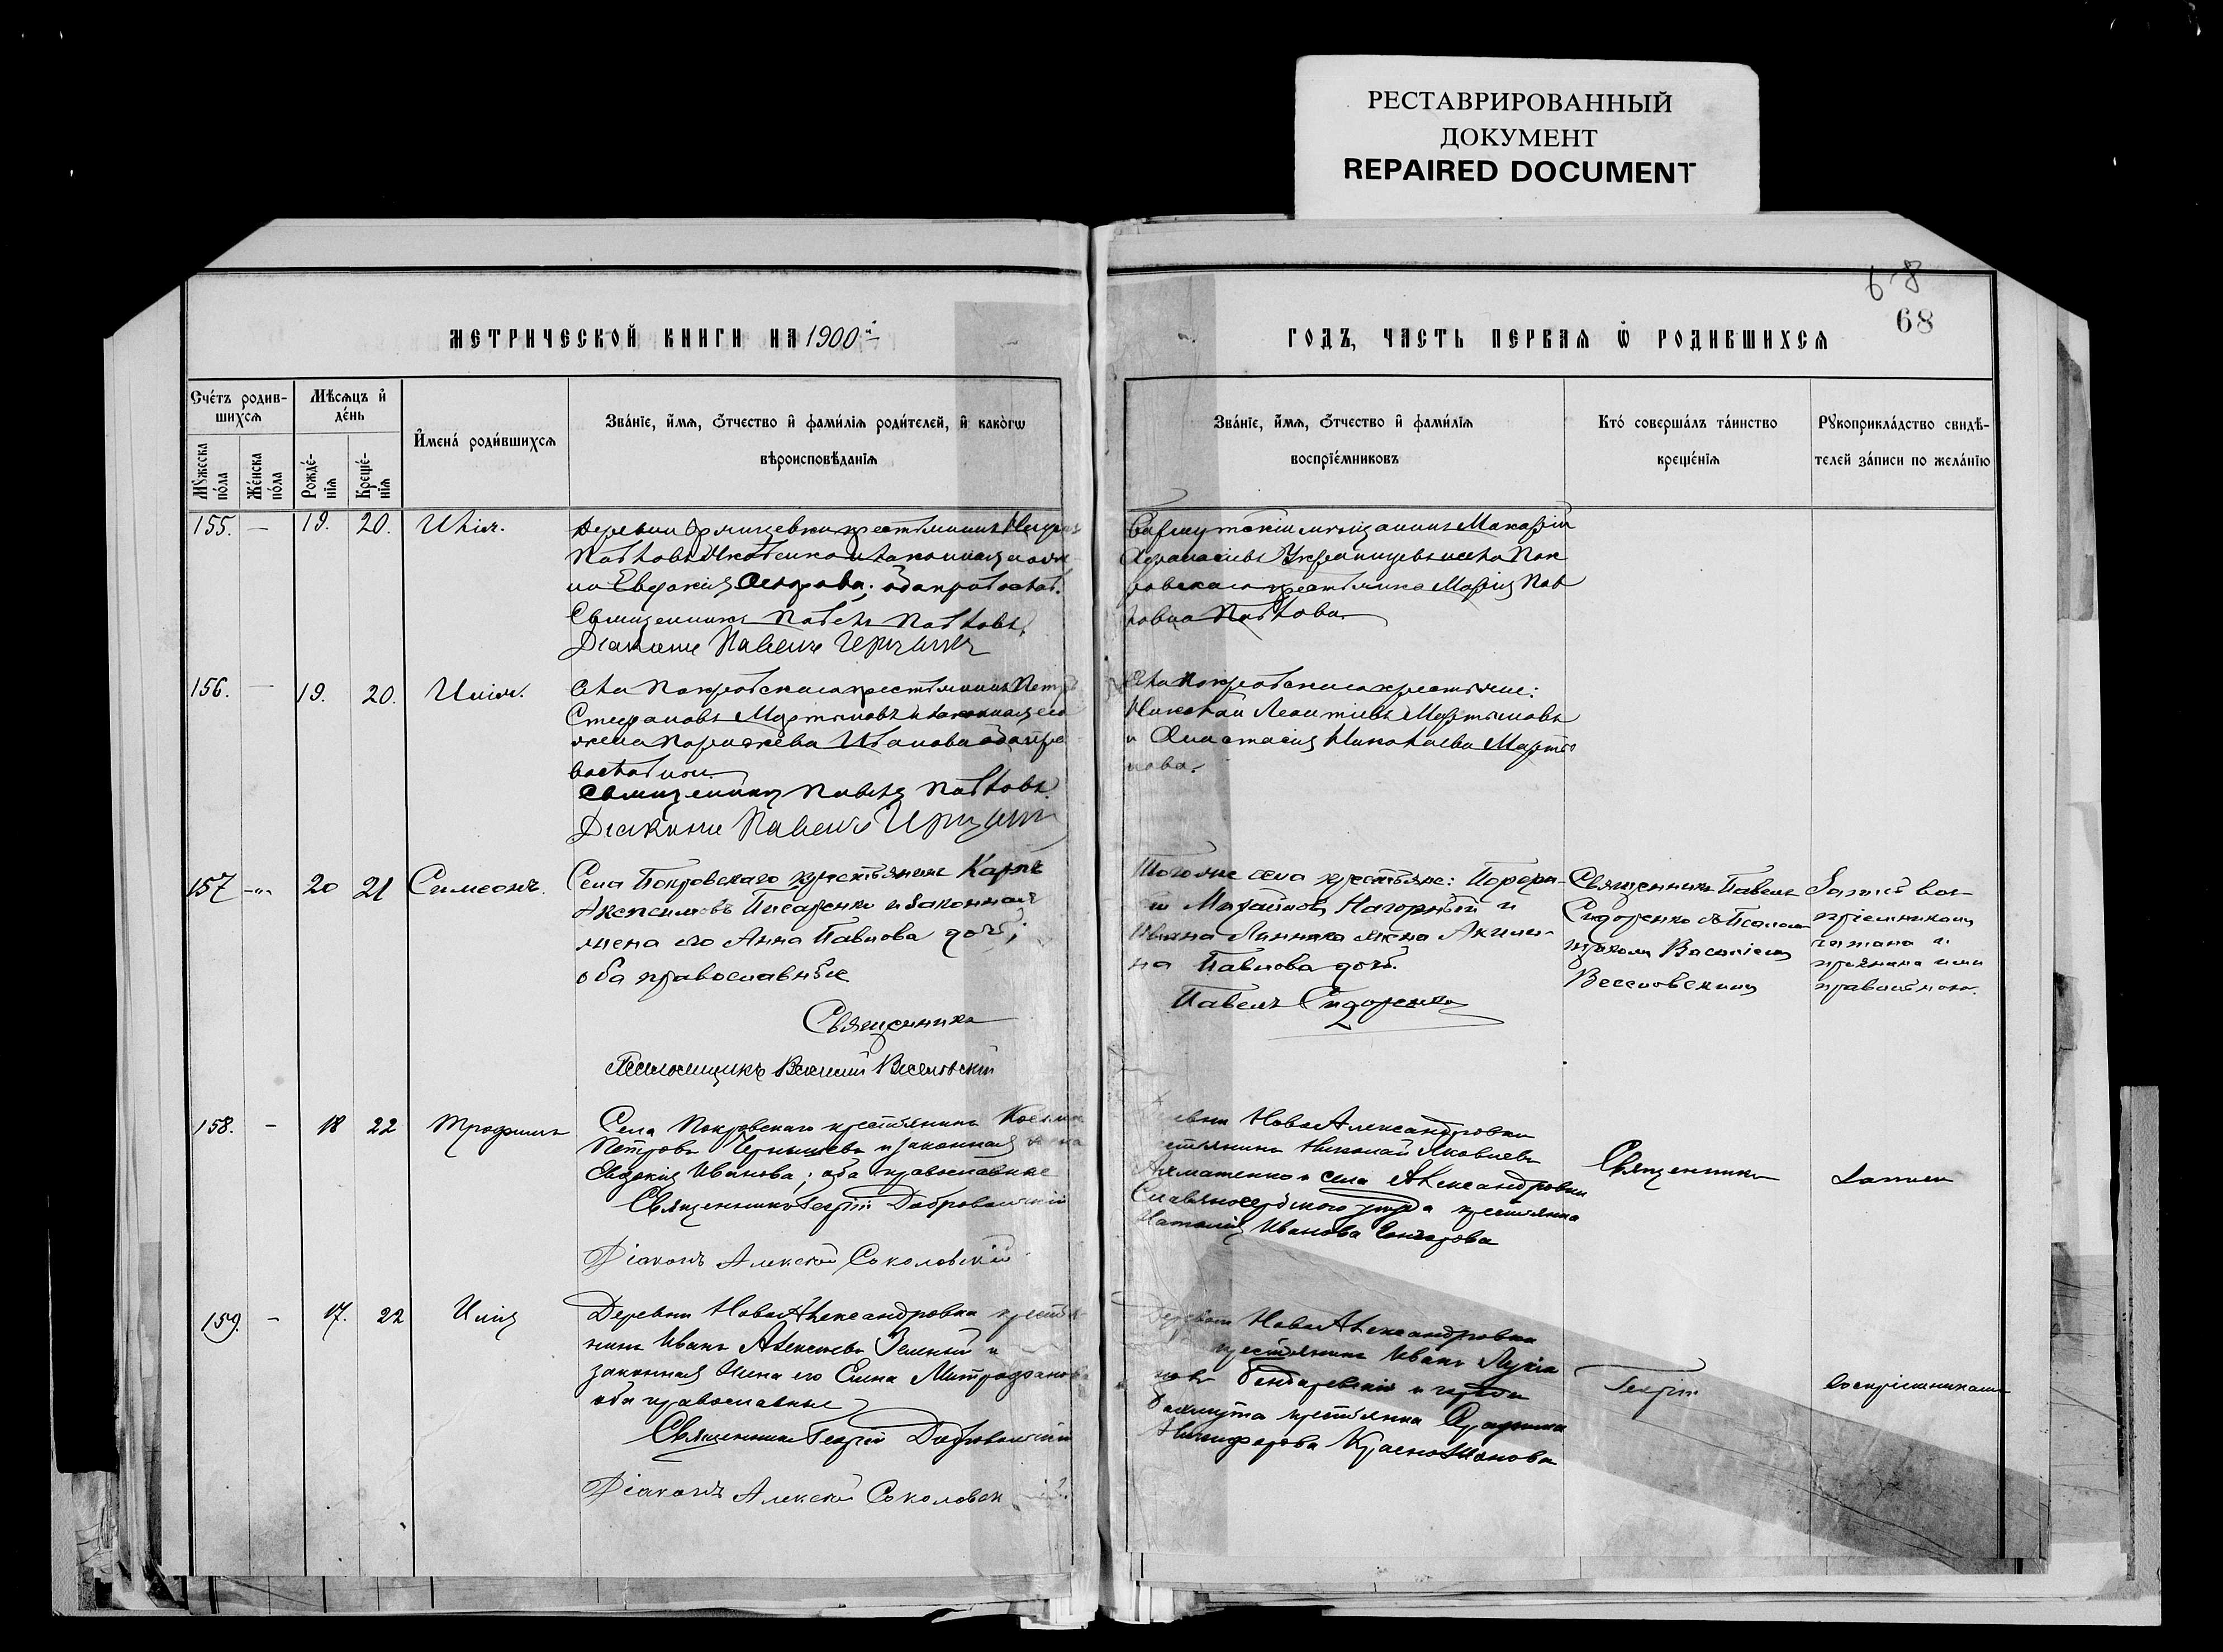 РЕСТАВРИРОВАННЫЙ
ДОКУМЕНТ
REPAIRED DOCUMENT
68
68
МЕТРИЧЕСКОЙ КНИГИ НА 1900й
ГОДЪ, ЧАСТЬ ПЕРВАѦ Ѡ РОДИВШИХСѦ
Счетъ родив-
шихсѧ
Мѣсѧцъ и
день
Мꙋжеска
пола
Женска
пола
Рожде-
нїѧ
Креще-
нїѧ
Имена родившихсѧ
Званїе, имѧ, ѻтчество и фамилїѧ родителей, и какогѡ
вѣроисповѣданїѧ
Званїе, имѧ, ѻтчество и фамилїѧ
воспрїемниковъ
Кто совершалъ таинство
крещенїѧ
Рꙋкоприкладство свидѣ-
телей записи по желанїю
155. — 19. 20. Илія.
крестьянинъ
Павловъ и законная жена
Евдокія оба православ.
Священникъ Павелъ Павловъ.
Діаконъ Павелъ
Бахмутскій мѣщанинъ Макарій
и села Пок
ровскаго крестьянка Марія Пав
лова Павлова.
156. — 19. 20. Илія.
Села Покровскаго крестьянинъ Петръ
Стефановъ Мартыновъ и законная его
жена Параскева Иванова оба пра
вославные.
Священникъ Павелъ Павловъ.
Діаконъ Павелъ
Села Покровскаго крестьяне:
Николай Леонтіевъ Мартыновъ
и Анастасія Николаева Марты
нова.
157 -"- 20 21 Симеонъ.
Села Покровскаго крестьянинъ Карпъ
Писаренко и законная
жена его Анна Павлова дочь;
оба православные
Священникъ
Псаломщикъ Василій Веселовскій
Тогоже села крестьяне: Порфи-
ій Михайловъ Нагорный и
жена Акили-
на Павлова дочь.
Павелъ Сидоренко
Священникъ Павелъ
Сидоренко съ Псалом-
щикомъ Василіемъ
Веселовскимъ
Запись вос-
пріемникамъ
читана и
признана ими
правильною.
158. - 18 22 Трофимъ
Села Покровскаго крестьянинъ Косьма
Петровъ Чернышевъ и законная жена
Евдокія Иванова; оба православные
Священникъ Георгій Добровольскій
Діаконъ Алексѣй Соколовскій
Деревни НовоАлександровки
крестьянинъ Николай Яковлевъ
Ахматенко и села Александровки
Славяносербскаго уѣзда крестьянка
Наталія Иванова Гончарова
Священникъ
Запись
159. - 17. 22 Илія
Деревни НовоАлександровки крестья-
нинъ Иванъ Алексѣевъ Зеленый и
законная жена его Елена Митрофанова
оба православные
Священникъ Георгій Добровольскій
Діаконъ Алексѣй Соколовскій
Деревни НовоАлександровки
крестьянинъ Иванъ Лукіа
новъ Бондаревскій и города
Бахмута крестьянка
Никифорова
Георгій
воспріемникамъ